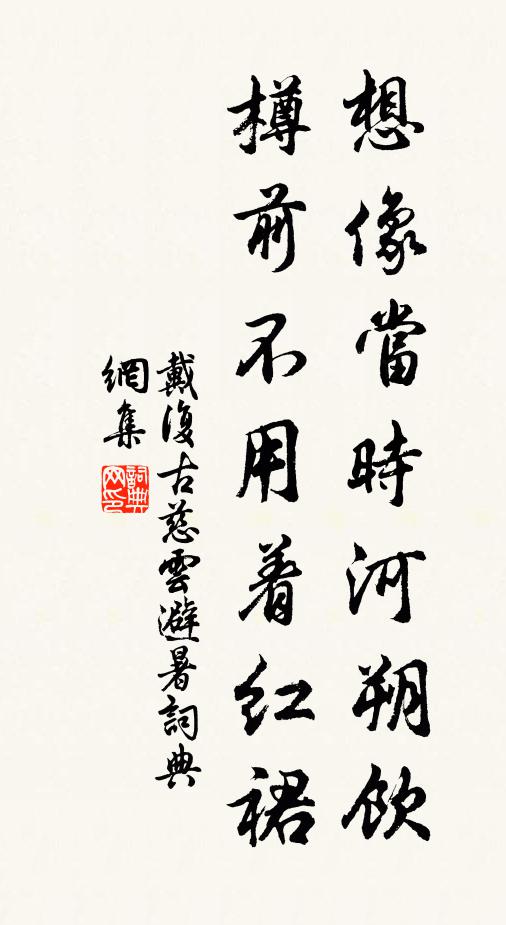 想像當時河朔飲
樽前不用着紅裙
戴復古慈雲避暑詞典
網集
詞典網印